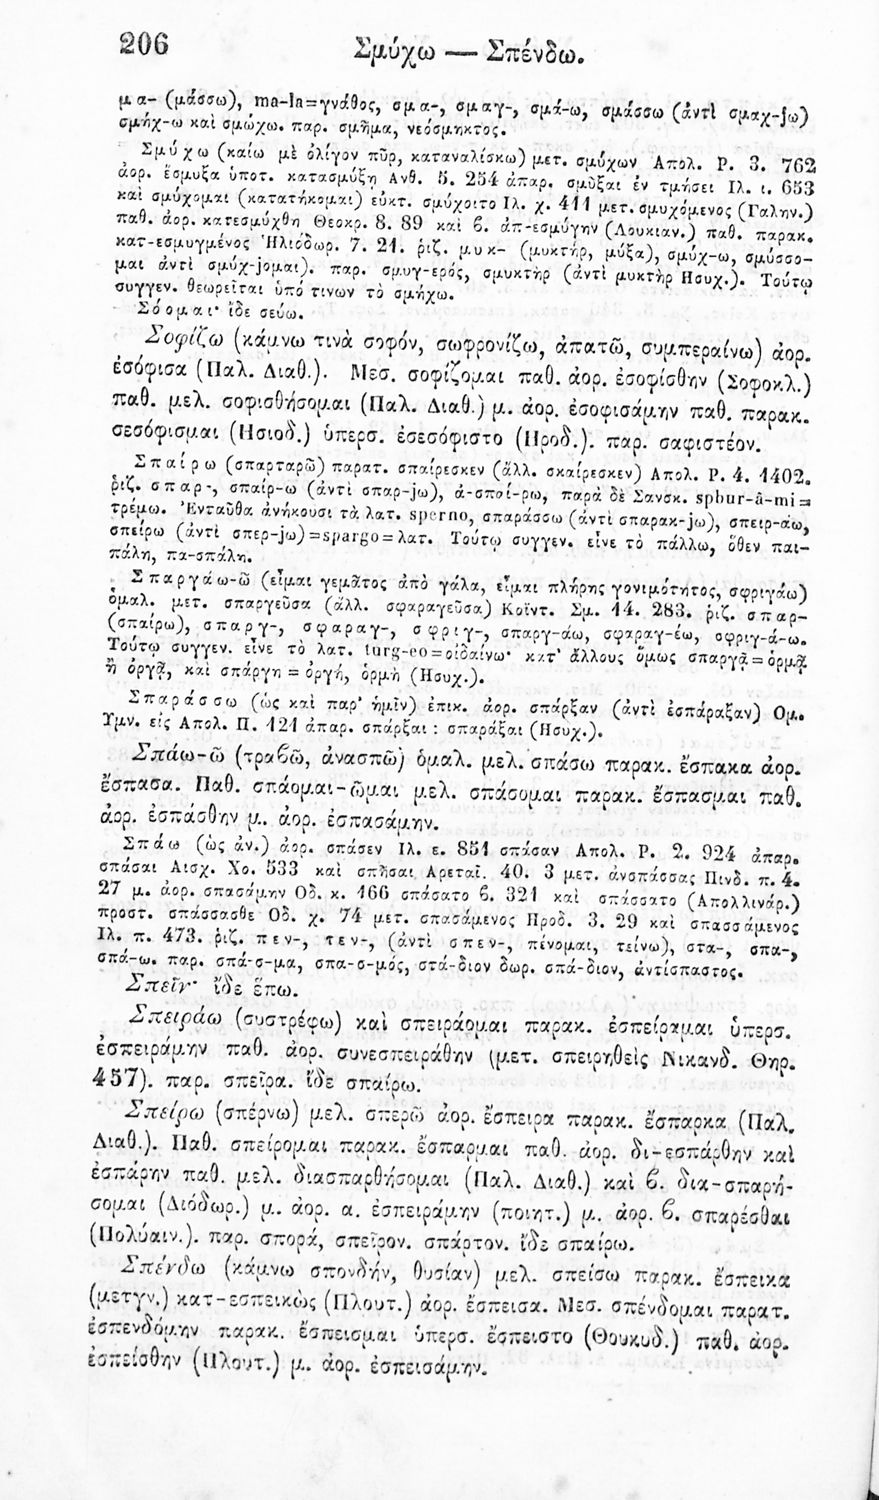 206 Σμύχω — Σπένδω.
μα- (μάσσω), ma-la=γνάθος, σμα-, σμαγ-, σμά-ω, σμάσσω (ἀντὶ σμαχ-jω)
σμήχ-ω καὶ σμώχω. παρ. σμῆμα, νεόσμηκτος.
Σμύχω (καίω μὲ ὀλίγον πῦρ, καταναλίσκω) μετ. σμύχων Απολ. Ρ. 3. 762
ἀορ. ἔσμυξα ὑποτ. κατασμύξῃ Ανθ. 5. 254 ἀπαρ. σμῦξαι ἐν τμήσει Ιλ. ι. 653
καὶ σμύχομαι (κατατήκομαι) εὐκτ. σμύχοιτο Ιλ. χ. 411 μετ. σμυχόμενος (Γαλην.)
παθ. ἀορ. κατεσμύχθη Θεοκρ. 8. 89 καὶ β. ἀπ-εσμύγην (Λουκιαν.) παθ. παρακ.
κατ-εσμυγμένος Ἡλιόδωρ. 7. 21. ῥιζ. μυκ- (μυκτήρ, μύξα), σμύχ-ω, σμύσσο-
μαι ἀντὶ σμύχ-jομαι). παρ. σμυγ-ερός, σμυκτὴρ (ἀντὶ μυκτὴρ Ησυχ.). Τούτῳ
συγγεν. θεωρεῖται ὑπό τινων τὸ σμήχω.
Σόομαι· ἴδε σεύω.
Σοφίζω (κάμνω τινὰ σοφόν, σωφρονίζω, ἀπατῶ, συμπεραίνω) ἀορ.
ἐσόφισα (Παλ. Διαθ.). Μεσ. σοφίζομαι παθ. ἀορ. ἐσοφίσθην (Σοφοκλ.)
παθ. μελ. σοφισθήσομαι (Παλ. Διαθ.) μ. ἀορ. ἐσοφισάμην παθ. παρακ.
σεσόφισμαι (Ησιοδ.) ὑπερσ. ἐσεσόφιστο (Ηροδ.). παρ. σαφιστέον.
Σπαίρω (σπαρταρῶ) παρατ. σπαίρεσκεν (ἄλλ. σκαίρεσκεν) Απολ. Ρ. 4. 1402.
ῥιζ. σπαρ-, σπαίρ-ω (ἀντὶ σπαρ-jω), ἀ-σπαί-ρω, παρὰ δὲ Σανσκ. sphur-â-mi=
τρέμω. Ἐνταῦθα ἀνήκουσι τὰ λατ. sperno, σπαράσσω (ἀντὶ σπαρακ-jω), σπειρ-άω,
σπείρω (ἀντὶ σπερ-jω)=spargo=λατ. Τούτῳ συγγεν. εἶνε τὸ πάλλω, ὅθεν παι-
πάλη, πα-σπάλη.
Σπαργάω-ῶ (εἶμαι γεμᾶτος ἀπὸ γάλα, εἶμαι πλήρης γονιμότητος, σφριγάω)
ὁμαλ. μετ. σπαργεῦσα (ἄλλ. σφαραγεῦσα) Κοΐντ. Σμ. 14. 283. ῥιζ. σπαρ-
(σπαίρω), σπαργ-, σφαραγ-, σφριγ-, σπαργ-άω, σφαραγ-έω, σφριγ-ά-ω.
Τούτῳ συγγεν. εἶνε τὸ λατ. turg-eo=οἰδαίνω· κατ' ἄλλους ὅμως σπαργᾷ=ὁρμᾷ
ἢ ὀργᾷ, καὶ σπάργη = ὀργή, ὁρμὴ (Ησυχ.).
Σπαράσσω (ὡς καὶ παρ' ἡμῖν) ἐπικ. ἀορ. σπάρξαν (ἀντὶ ἐσπάραξαν) Ομ.
Ὑμν. εἰς Απολ. Π. 121 ἀπαρ. σπάρξαι : σπαράξαι (Ησυχ.).
Σπάω-ῶ (τραβῶ, ἀνασπῶ) ὁμαλ. μελ. σπάσω παρακ. ἔσπακα ἀορ.
ἔσπασα. Παθ. σπάομαι-ῶμαι μελ. σπάσομαι παρακ. ἔσπασμαι παθ.
ἀορ. ἐσπάσθην μ. ἀορ. ἐσπασάμην.
Σπάω (ὡς ἀν.) ἀορ. σπάσεν Ιλ. ε. 851 σπάσαν Απολ. Ρ. 2. 924 ἀπαρ.
σπάσαι Αισχ. Χο. 533 καὶ σπῆσαι Αρεταῖ. 40. 3 μετ. ἀνσπάσσας Πινδ. π. 4.
27 μ. ἀορ. σπασάμην Οδ. κ. 166 σπάσατο β. 321 καὶ σπάσσατο (Απολλινάρ.)
προστ. σπάσσασθε Οδ. χ. 74 μετ. σπασάμενος Ηροδ. 3. 29 καὶ σπασσάμενος
Ιλ. π. 473. ῥιζ. πεν-, τεν-, (ἀντὶ σπεν-, πένομαι, τείνω), στα-, σπα-,
σπά-ω. παρ. σπά-σ-μα, σπα-σ-μός, στά-διον δωρ. σπά-διον, ἀντίσπαστος.
Σπεῖν· ἴδε ἕπω.
Σπειράω (συστρέφω) καὶ σπειράομαι παρακ. ἐσπείραμαι ὑπερσ.
ἐσπειράμην παθ. ἀορ. συνεσπειράθην (μετ. σπειρηθεὶς Νικανδ. Θηρ.
457). παρ. σπεῖρα. ἴδε σπαίρω.
Σπείρω (σπέρνω) μελ. σπερῶ ἀορ. ἔσπειρα παρακ. ἔσπαρκα (Παλ.
Διαθ.). Παθ. σπείρομαι παρακ. ἔσπαρμαι παθ. ἀορ. δι-εσπάρθην καὶ
ἐσπάρην παθ. μελ. διασπαρθήσομαι (Παλ. Διαθ.) καὶ β. δια-σπαρή-
σομαι (Διόδωρ.) μ. ἀορ. α. ἐσπειράμην (ποιητ.) μ. ἀορ. β. σπαρέσθαι
(Πολύαιν.). παρ. σπορά, σπεῖρον. σπάρτον. ἴδε σπαίρω.
Σπένδω (κάμνω σπονδήν, θυσίαν) μελ. σπείσω παρακ. ἔσπεικα
(μετγν.) κατ-εσπεικὼς (Πλουτ.) ἀορ. ἔσπεισα. Μεσ. σπένδομαι παρατ.
ἐσπενδόμην παρακ. ἔσπεισμαι ὑπερσ. ἔσπειστο (Θουκυδ.) παθ. ἀορ.
ἐσπείσθην (Πλουτ.) μ. ἀορ. ἐσπεισάμην.